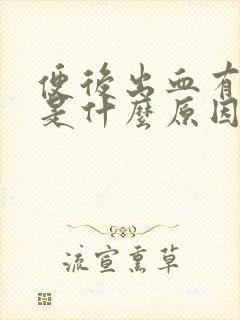 便後出血有
是什麼原因
流宣熏草